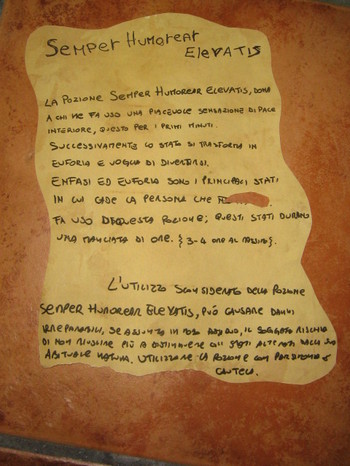 SEMPER HUMOREAT
ELEVATIS
LA POZIONE SEMPER HUMOREAR ELEVATIS, DONA
A CHI NE FA USO UNA PIACEVOLE SENSAZIONE DI PACE
INTERIORE, QUESTO PER I PRIMI MINUTI.
SUCCESSIVAMENTE LO STATO SI TRASFORMA IN
EUFORIA E VOGLIA DI DIVERTIRSI.
ENFASI ED EUFORIA SONO I PRINCIPALI STATI
IN CUI CADE LA PERSONA CHE
FA USO DI QUESTA POZIONE; QUESTI STATI DURANO
UNA MANCIATA DI ORE. {3-4 ORE AL MASSIMO}.
L'UTILIZZO SCONSIDERATO DELLA POZIONE
SEMPER HUMOREAR ELEVATIS, PUÒ CAUSARE DANNI
IRREPARABILI, SE ASSUNTA IN DOSI, IL SOGGETTO RISCHIA
DI NON RIUSCIRE PIÙ A DISTINGUERE GLI STATI ALTERATI DALLA SUA
ABITUALE NATURA. UTILIZZARE LA POZIONE CON PARSIMONIA E
CAUTELA.